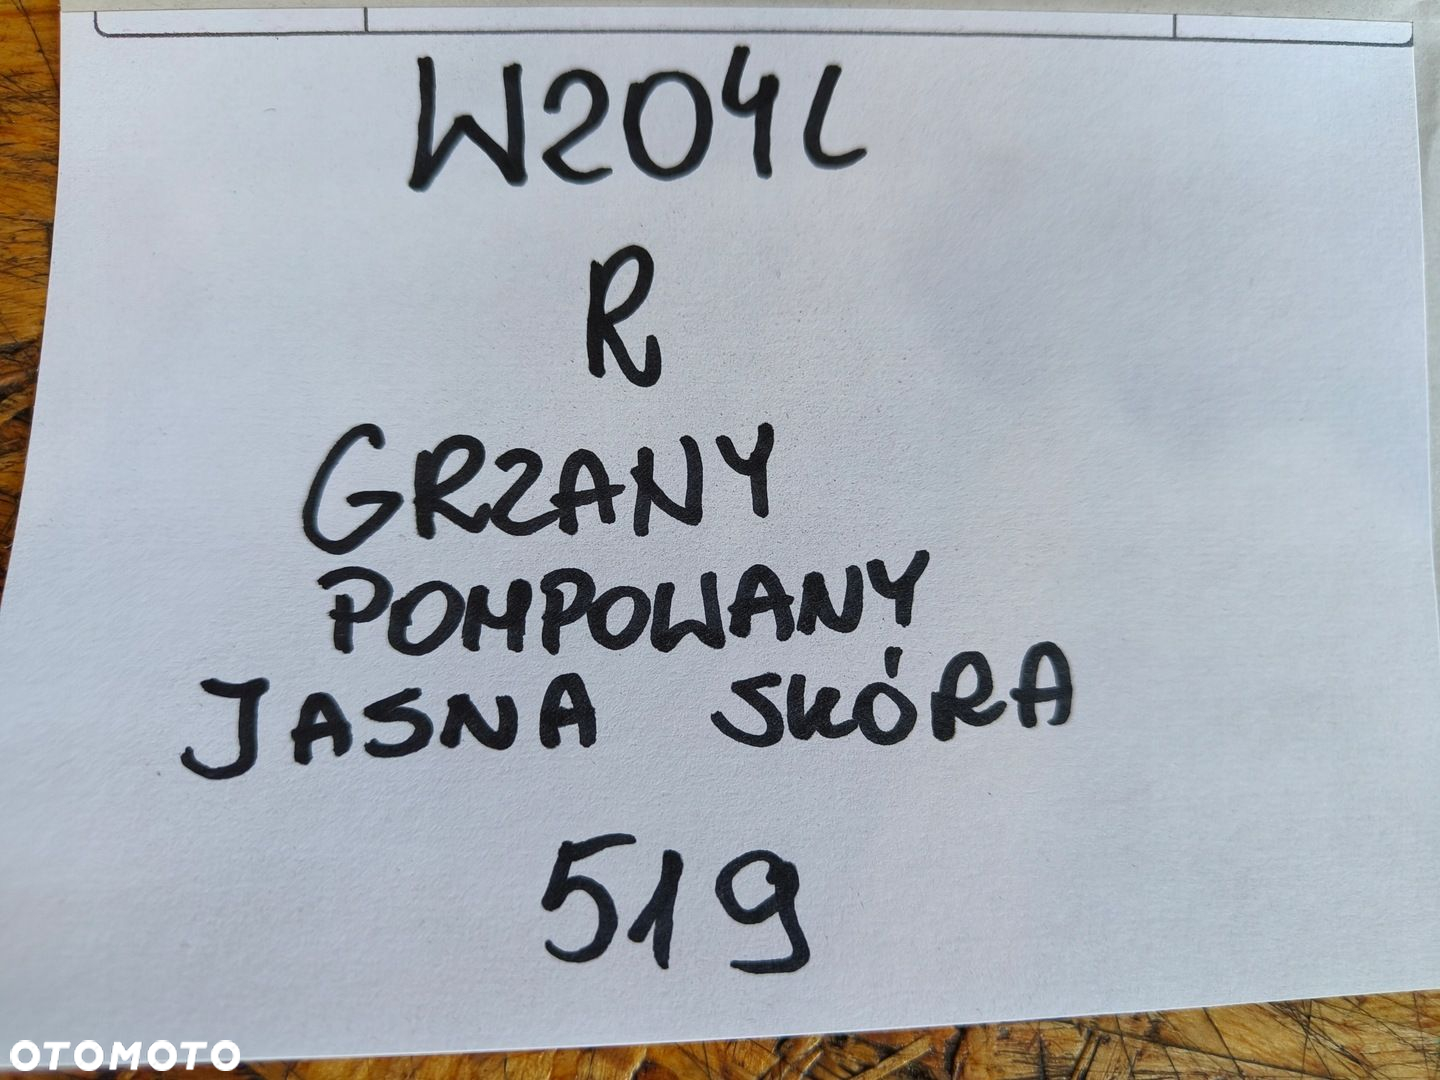 W204L
R
GRZANY
POMPOWANY
JASNA SKÓRA
519
OTOMOTO